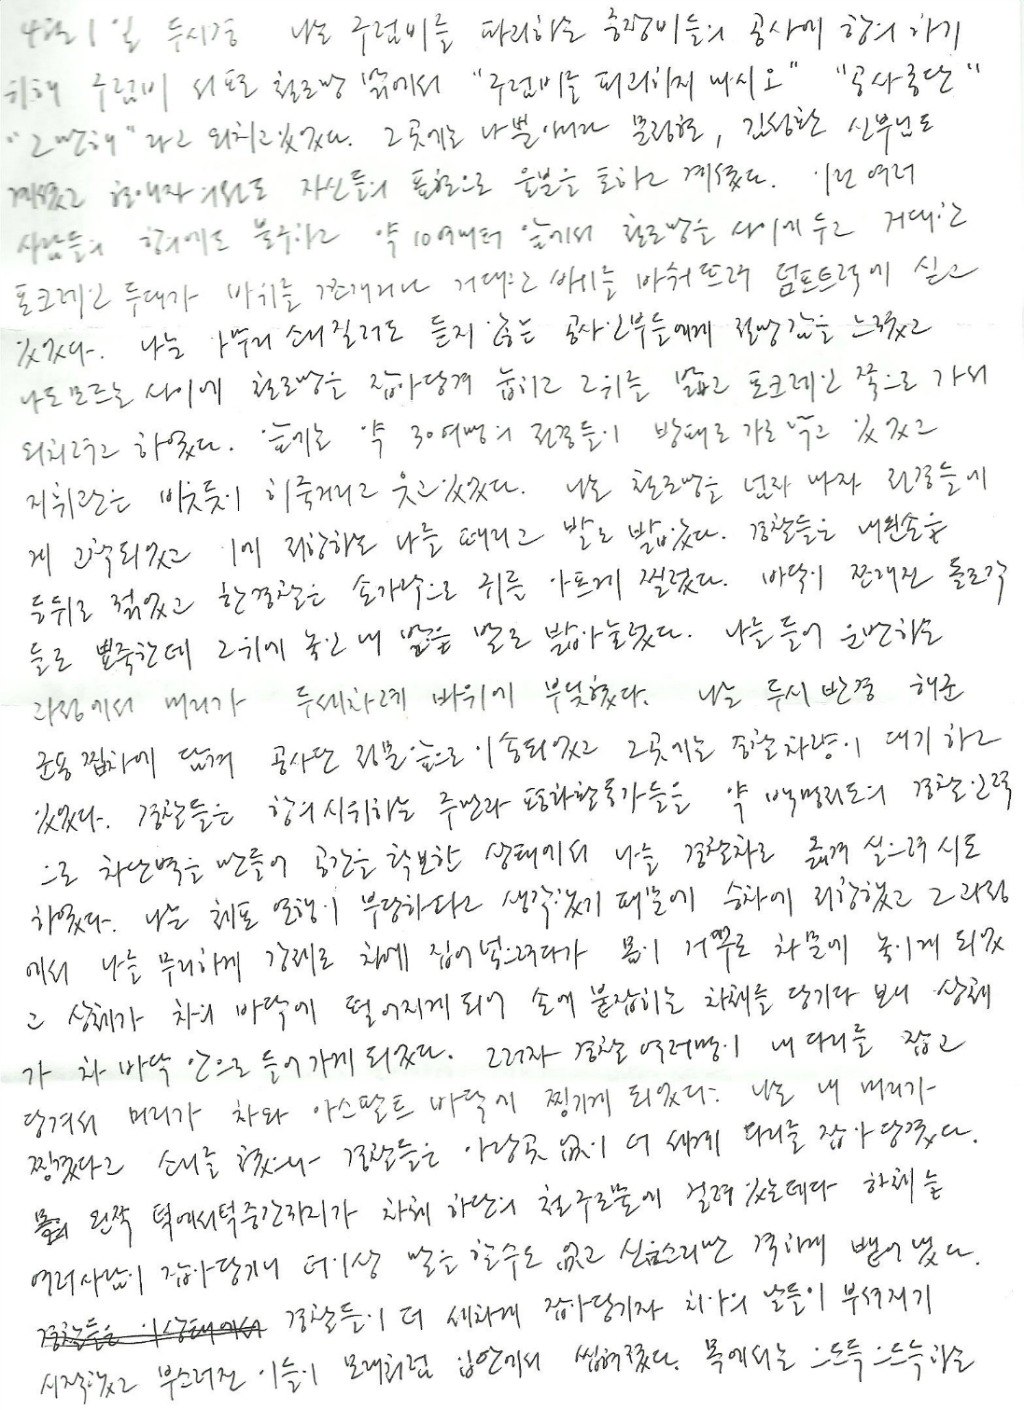 4월 1일 두시경 나는 구럼비를 파괴하는 중장비들의 공사에 항의 하기
위해 구럼비 서쪽 철조망 밖에서 "구럼비를 파괴하지 마시오" "공사중단"
"그만해" 라고 외치고 있었다. 그곳에는 나 뿐 아니라 문정현, 김성환 신부님도
계셨고 활동가들도 자신들의 표현으로 울분을 토하고 계셨다. 이런 여러
사람들의 항의에도 불구하고 약 10여미터 앞에서 철조망을 사이에 두고 거대한
포크레인 두대가 바위를 깬개거나 거대한 바위를 바숴뜨려 덤프트럭에 싣고
있었다. 나는 아무리 소리질러도 듣지 않는 공사인부들에게 절망감을 느꼈고
나도 모르는 사이에 철조망을 잡아당겨 눕히고 그위를 밟고 포크레인 쪽으로 가서
외치려고 하였다. 앞에는 약 30여명의 전경들이 방패로 가로막고 있었고
지휘관은 비웃듯이 히죽거리고 웃고있었다. 나는 철조망을 넘자 마자 전경들에
게 고착되었고 이에 저항하는 나를 때리고 발로 밟았다. 경찰들은 내왼손을
등뒤로 꺾었고 한경찰은 손가락으로 귀를 아프게 찔렀다. 바닥이 깨진 돌조각
들로 뾰족한데 그위에 놓인 내 얼굴을 발로 밟아눌렀다. 나를 들어 운반하는
과정에서 머리가 두세차례 바위에 부딪혔다. 나는 두시 반경 해군
군용찝차에 담겨 공사단 정문앞으로 이송되었고 그곳에는 경찰차량이 대기하고
있었다. 경찰들은 항의시위하는 주민과 평화활동가들을 약 백명정도의 경찰인력
으로 차단벽을 만들어 공간을 확보한 상태에서 나를 경찰차로 옮겨 실으려 시도
하였다. 나는 체포 연행이 부당하다고 생각했기 때문에 승차에 저항했고 그 과정
에서 나를 무리하게 강제로 차에 집어넣으려다가 몸이 거꾸로 차문에 놓이게 되었
고 상체가 차의 바닥에 떨어지게되어 손에 붙잡히는 차체를 당기다 보니 상체
가 차 바닥 안으로 들어가게 되었다. 그러자 경찰 여러명이 내 다리를 잡고
당겨서 머리가 차와 아스팔트 바닥에 찡기게 되었다. 나는 내 머리가
찡겼다고 소리를 쳤으나 경찰들은 아랑곳 없이 더 세게 다리를 잡아 당겼다.
몸의 왼쪽 턱에서턱중간까지가 차체 하단의 철구조물에 걸려 있는데다 하체를
여러사람이 잡아당기니 더이상 말을 할수도 없고 신음소리만 격하게 뱉어 냈다.
경찰들은 이상태에서 경찰들이 더 세차게 잡아당기자 치아의 날들이 부셔지기
시작했고 부스러진 이들이 모래처럼 입안에서 씹혀졌다. 목에서는 으드득으드득하는